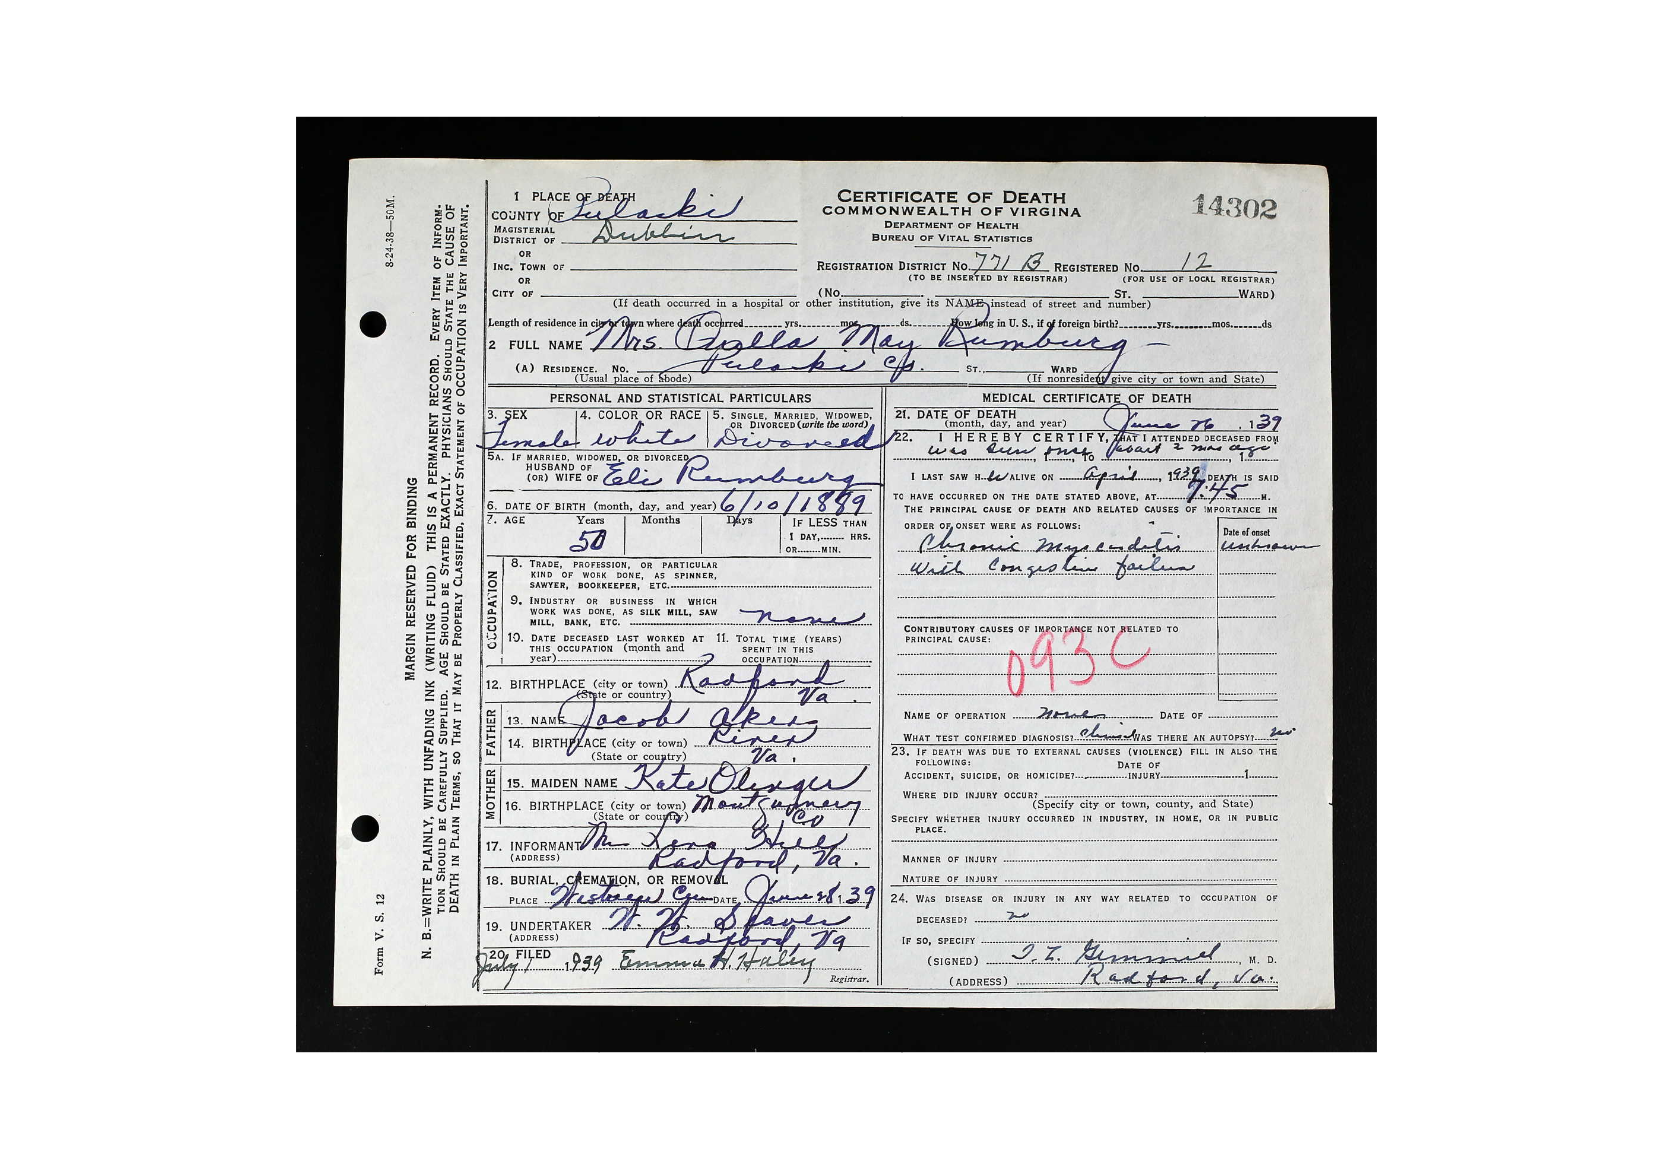 8-24-38—50M.
MARGIN RESERVED FOR BINDING
N. B.—WRITE PLAINLY, WITH UNFADING INK (WRITING FLUID) THIS IS A PERMANENT RECORD. EVERY ITEM OF INFORM-
TION SHOULD BE CAREFULLY SUPPLIED. AGE SHOULD BE STATED EXACTLY. PHYSICIANS SHOULD STATE THE CAUSE OF
DEATH IN PLAIN TERMS, SO THAT IT MAY BE PROPERLY CLASSIFIED. EXACT STATEMENT OF OCCUPATION IS VERY IMPORTANT.
Form V. S. 12
1 PLACE OF DEATH
COUNTY OF Pulaski
MAGISTERIAL
DISTRICT OF Dublin
OR
INC. TOWN OF
OR
CITY OF
CERTIFICATE OF DEATH
COMMONWEALTH OF VIRGINIA
DEPARTMENT OF HEALTH
BUREAU OF VITAL STATISTICS
14302
REGISTRATION DISTRICT NO. 771 B REGISTERED NO. 12
(TO BE INSERTED BY REGISTRAR) (FOR USE OF LOCAL REGISTRAR)
(No. ST. WARD)
(If death occurred in a hospital or other institution, give its NAME instead of street and number)
Length of residence in city or town where death occurred yrs. mos. ds. How long in U. S., if of foreign birth? yrs. mos. ds
2 FULL NAME Mrs. May Rumburg
(A) RESIDENCE. No. Pulaski Co. ST. WARD
(Usual place of abode) (If nonresident give city or town and State)
PERSONAL AND STATISTICAL PARTICULARS
3. SEX 4. COLOR OR RACE 5. SINGLE, MARRIED, WIDOWED,
OR DIVORCED (write the word)
Female white Divorced
5A. IF MARRIED, WIDOWED, OR DIVORCED
HUSBAND OF
(OR) WIFE OF Eli Rumburg
6. DATE OF BIRTH (month, day, and year) 6/10/1889
7. AGE Years Months Days IF LESS THAN
50 1 DAY, HRS.
OR MIN.
OCCUPATION
8. TRADE, PROFESSION, OR PARTICULAR
KIND OF WORK DONE, AS SPINNER,
SAWYER, BOOKKEEPER, ETC.
9. INDUSTRY OR BUSINESS IN WHICH
WORK WAS DONE, AS SILK MILL, SAW
MILL, BANK, ETC. none
10. DATE DECEASED LAST WORKED AT 11. TOTAL TIME (YEARS)
THIS OCCUPATION (month and SPENT IN THIS
year) OCCUPATION
12. BIRTHPLACE (city or town) Radford
(State or country) Va
FATHER
13. NAME Jacob Akers
14. BIRTHPLACE (city or town) River
(State or country) Va.
MOTHER
15. MAIDEN NAME Kate Olinger
16. BIRTHPLACE (city or town) Montgomery
(State or country) Co
17. INFORMANT Mrs Lena Hill
(ADDRESS) Radford, Va.
18. BURIAL, CREMATION, OR REMOVAL
PLACE Cem DATE June 28, 1939
19. UNDERTAKER W. W. Seaver
(ADDRESS) Radford, Va
20. FILED July 1, 1939 Emma H. Haley
Registrar.
MEDICAL CERTIFICATE OF DEATH
21. DATE OF DEATH
(month, day, and year) June 26, 139
22. I HEREBY CERTIFY, THAT I ATTENDED DECEASED FROM
was seen once, 1, TO about 2 mos ago, 1
I LAST SAW H er ALIVE ON April, 1939, DEATH IS SAID
TO HAVE OCCURRED ON THE DATE STATED ABOVE, AT 7:45 M.
THE PRINCIPAL CAUSE OF DEATH AND RELATED CAUSES OF IMPORTANCE IN
ORDER OF ONSET WERE AS FOLLOWS: Date of onset
Chronic Myocarditis unknown
With Congestive failure
CONTRIBUTORY CAUSES OF IMPORTANCE NOT RELATED TO
PRINCIPAL CAUSE:
093 C
NAME OF OPERATION none DATE OF
WHAT TEST CONFIRMED DIAGNOSIS? Clinical WAS THERE AN AUTOPSY? no
23. IF DEATH WAS DUE TO EXTERNAL CAUSES (VIOLENCE) FILL IN ALSO THE
FOLLOWING: DATE OF
ACCIDENT, SUICIDE, OR HOMICIDE? INJURY 1
WHERE DID INJURY OCCUR?
(Specify city or town, county, and State)
SPECIFY WHETHER INJURY OCCURRED IN INDUSTRY, IN HOME, OR IN PUBLIC
PLACE.
MANNER OF INJURY
NATURE OF INJURY
24. WAS DISEASE OR INJURY IN ANY WAY RELATED TO OCCUPATION OF
DECEASED? no
IF SO, SPECIFY
(SIGNED) Gemmel, M. D.
(ADDRESS) Radford, Va.